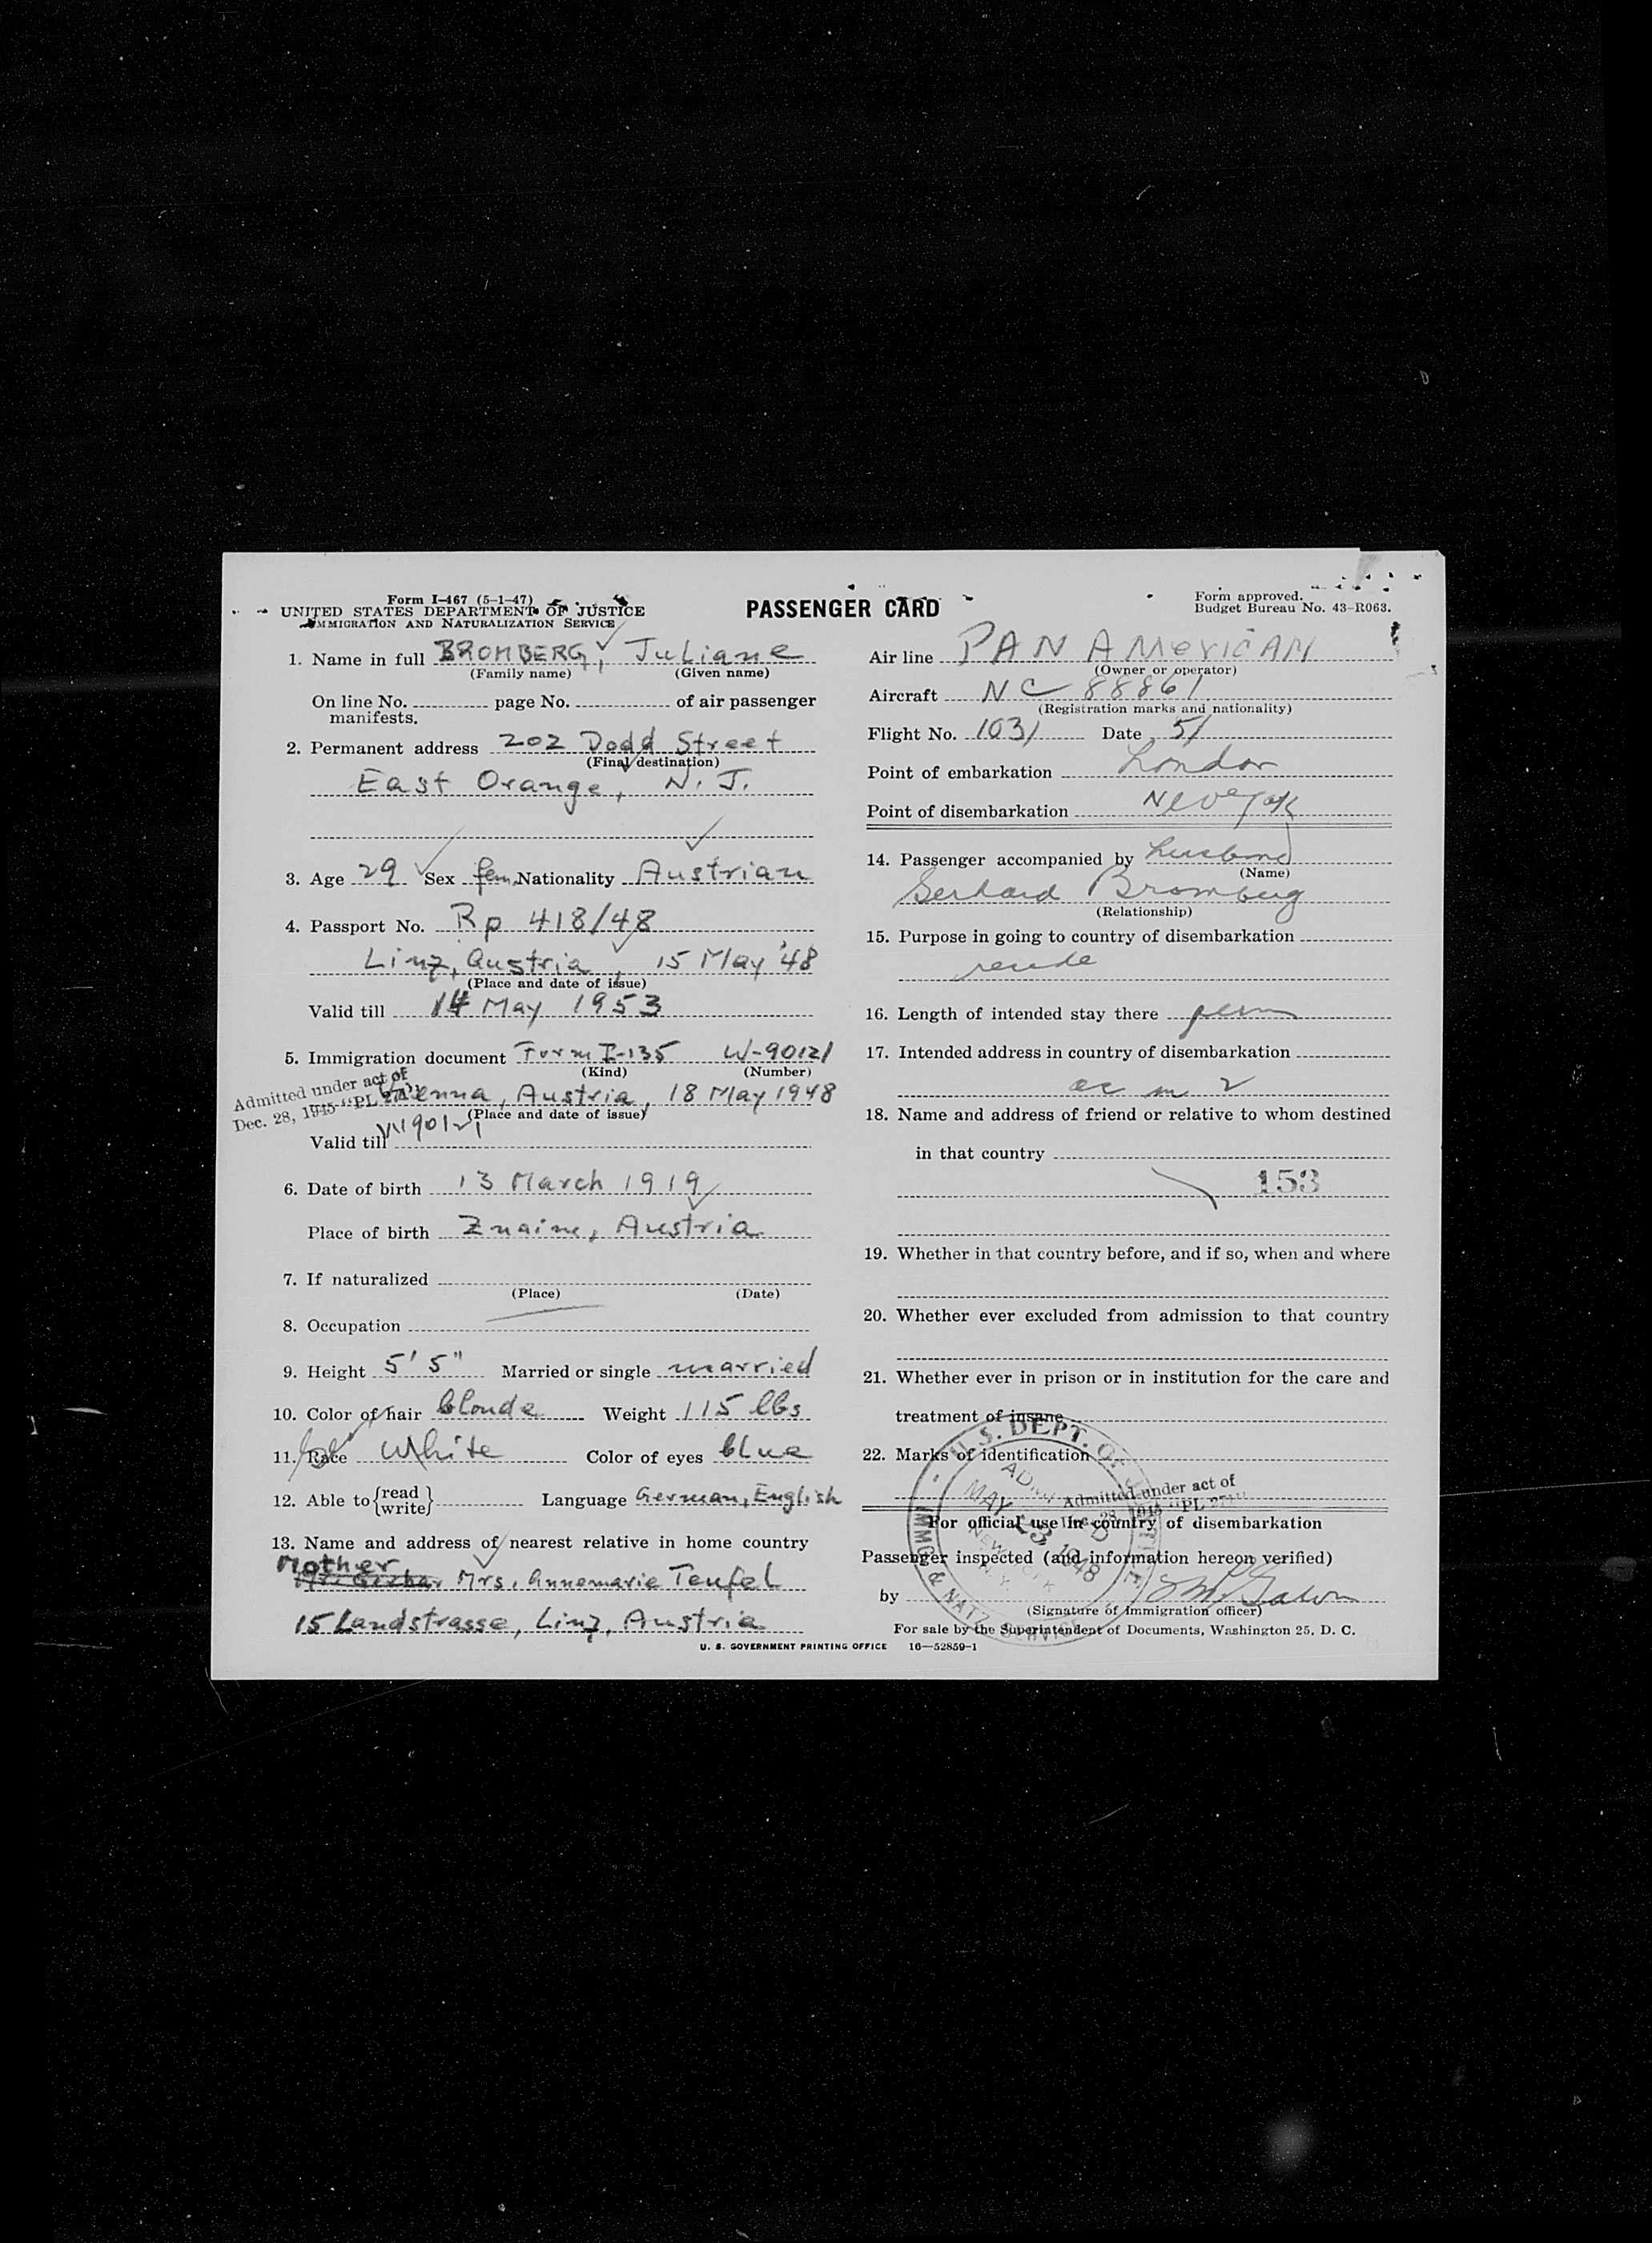 Form I-467 (5-1-47)
UNITED STATES DEPARTMENT OF JUSTICE
IMMIGRATION AND NATURALIZATION SERVICE
PASSENGER CARD
Form approved.
Budget Bureau No. 43-R063.
1. Name in full BROMBERG, Juliane
(Family name) (Given name)
On line No. page No. of air passenger
manifests.
2. Permanent address 202 Dodd Street
(Final destination)
East Orange, N. J.
3. Age 29 Sex fem. Nationality Austrian
4. Passport No. Rp 418/48
Linz, Austria, 15 May '48
(Place and date of issue)
Valid till 14 May 1953
5. Immigration document Form I-135 W-90121
(Kind) (Number)
Admitted under act of
Dec. 28, 1945 "PL 271"
Vienna, Austria, 18 May 1948
(Place and date of issue)
Valid till
6. Date of birth 13 March 1919
Place of birth Znaim, Austria
7. If naturalized
(Place) (Date)
8. Occupation
9. Height 5' 5" Married or single married
10. Color of hair blonde Weight 115 lbs
11. Race White Color of eyes blue
12. Able to {read write} Language German, English
13. Name and address of nearest relative in home country
Mother
Mrs. Annemarie Teufel
15 Landstrasse, Linz, Austria
Air line PAN AMERICAN
(Owner or operator)
Aircraft NC 88861
(Registration marks and nationality)
Flight No. 103/ Date 5/
Point of embarkation London
Point of disembarkation New York
14. Passenger accompanied by husband
(Name)
Gerhard Bromberg
(Relationship)
15. Purpose in going to country of disembarkation
reside
16. Length of intended stay there perm
17. Intended address in country of disembarkation
as in 2
18. Name and address of friend or relative to whom destined
in that country
153
19. Whether in that country before, and if so, when and where
20. Whether ever excluded from admission to that country
21. Whether ever in prison or in institution for the care and
treatment of insane
22. Marks of identification
U. S. DEPT. OF JUSTICE
ADMITTED
MAY 23 1948
NEW YORK
N. Y.
IMMG & NATZ SERVICE
Admitted under act of
Dec. 28, 1945 "PL 271"
For official use in country of disembarkation
Passenger inspected (and information hereon verified)
by
(Signature of immigration officer)
For sale by the Superintendent of Documents, Washington 25, D. C.
U. S. GOVERNMENT PRINTING OFFICE 16—52859-1